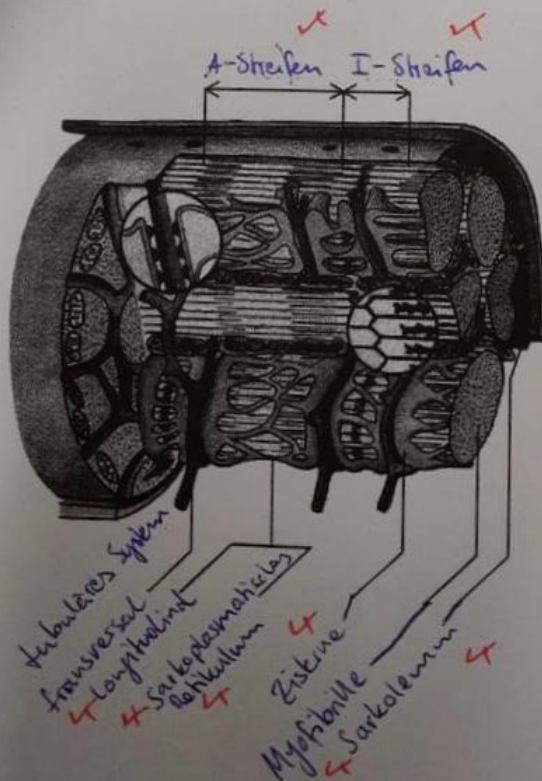 A-Streifen
I-Streifen
tubuläres System
transversal
longitudinal
Sarkoplasmatisches
Retikullum
Zisterne
Myofibrille
Sarkolemm